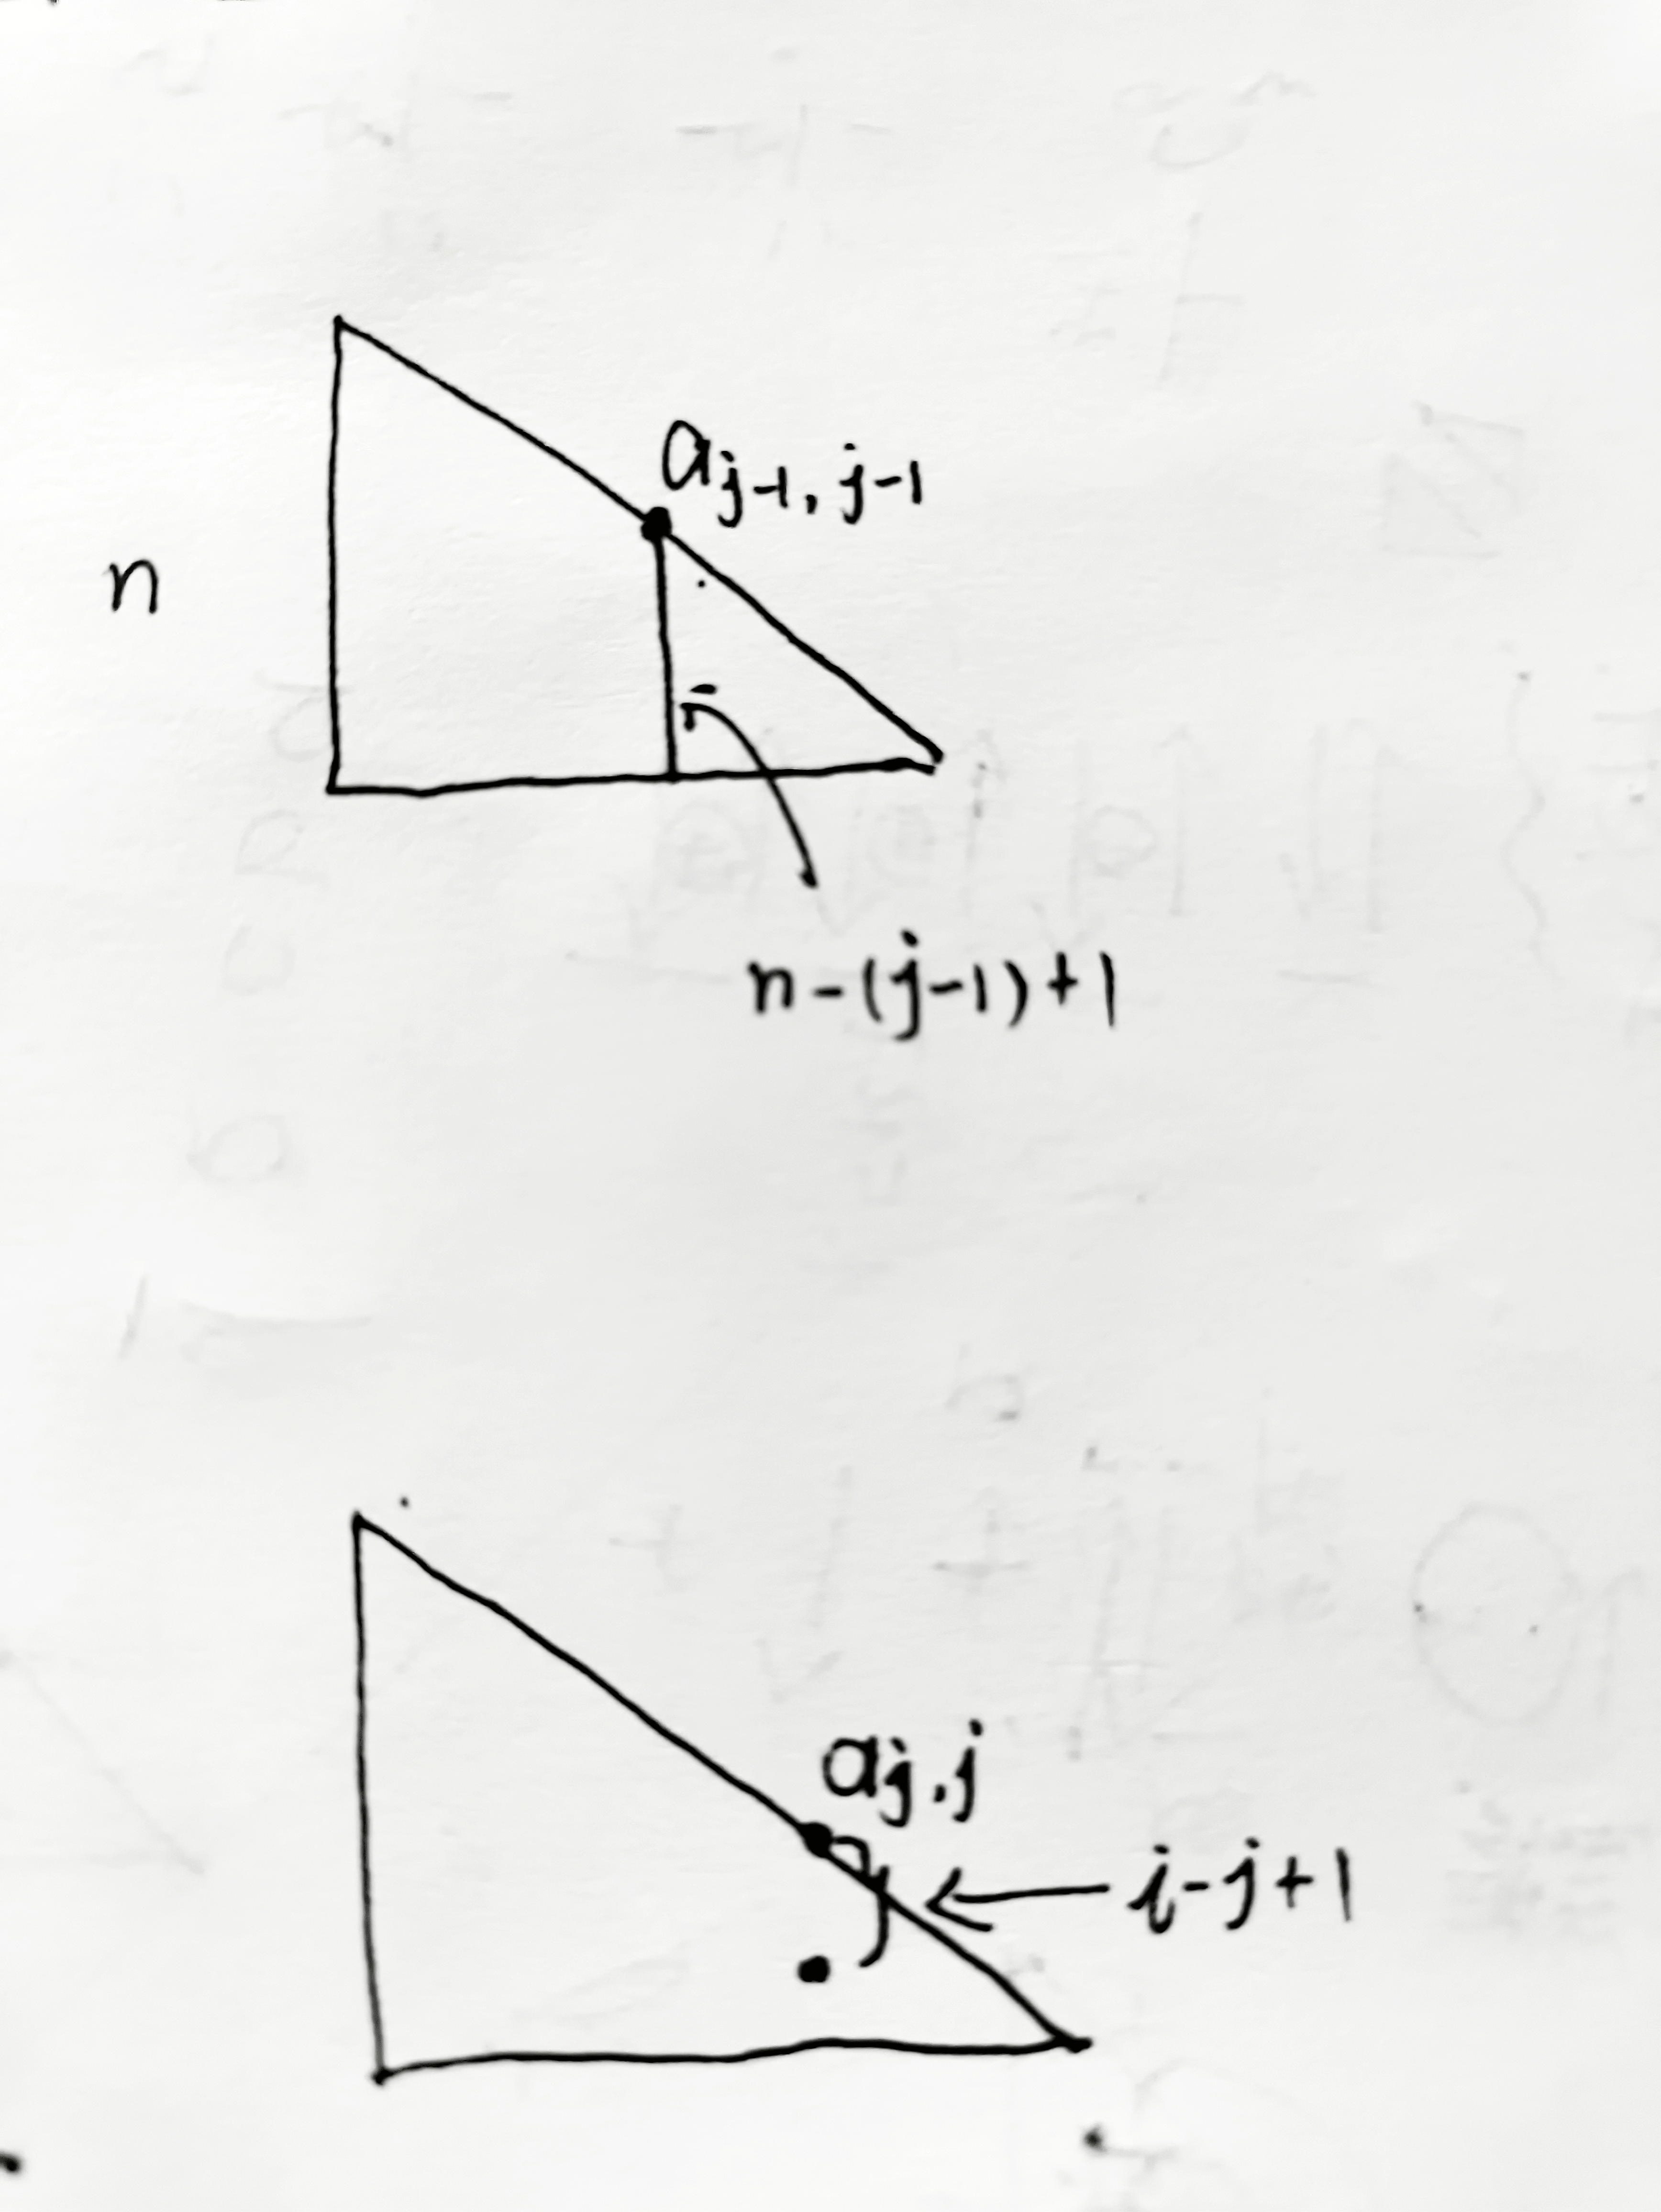 a_{j-1, j-1}
n
n-(j-1)+1
a_{j,j}
i-j+1